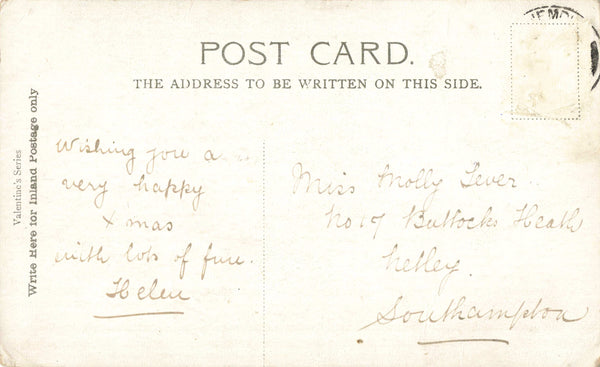 POST CARD.
THE ADDRESS TO BE WRITTEN ON THIS SIDE.
Valentine's Series
Write Here for Inland Postage only
Wishing you a
very happy
Xmas
with lots of fun.
Helen
Miss Molly Lever
No 17 Bullocks Heath
Netley.
Southampton